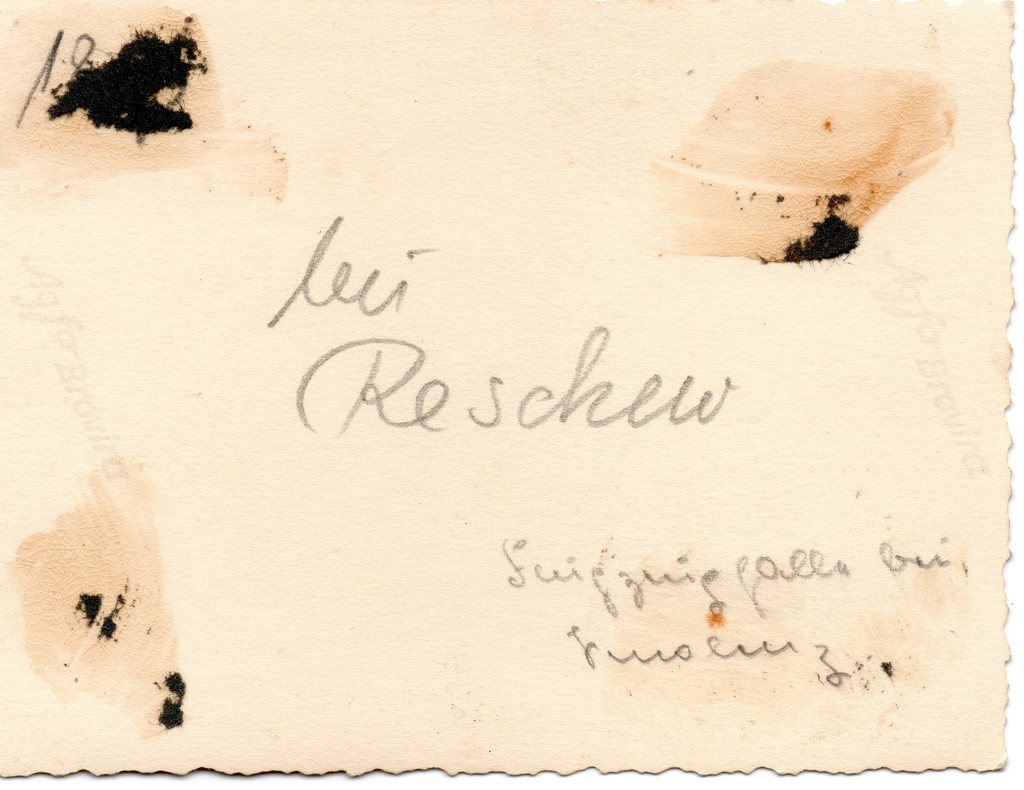 18
bei
Reschew
Agfa Brovira
Agfa Brovira
Flugzeughalle bei
Smolenz.